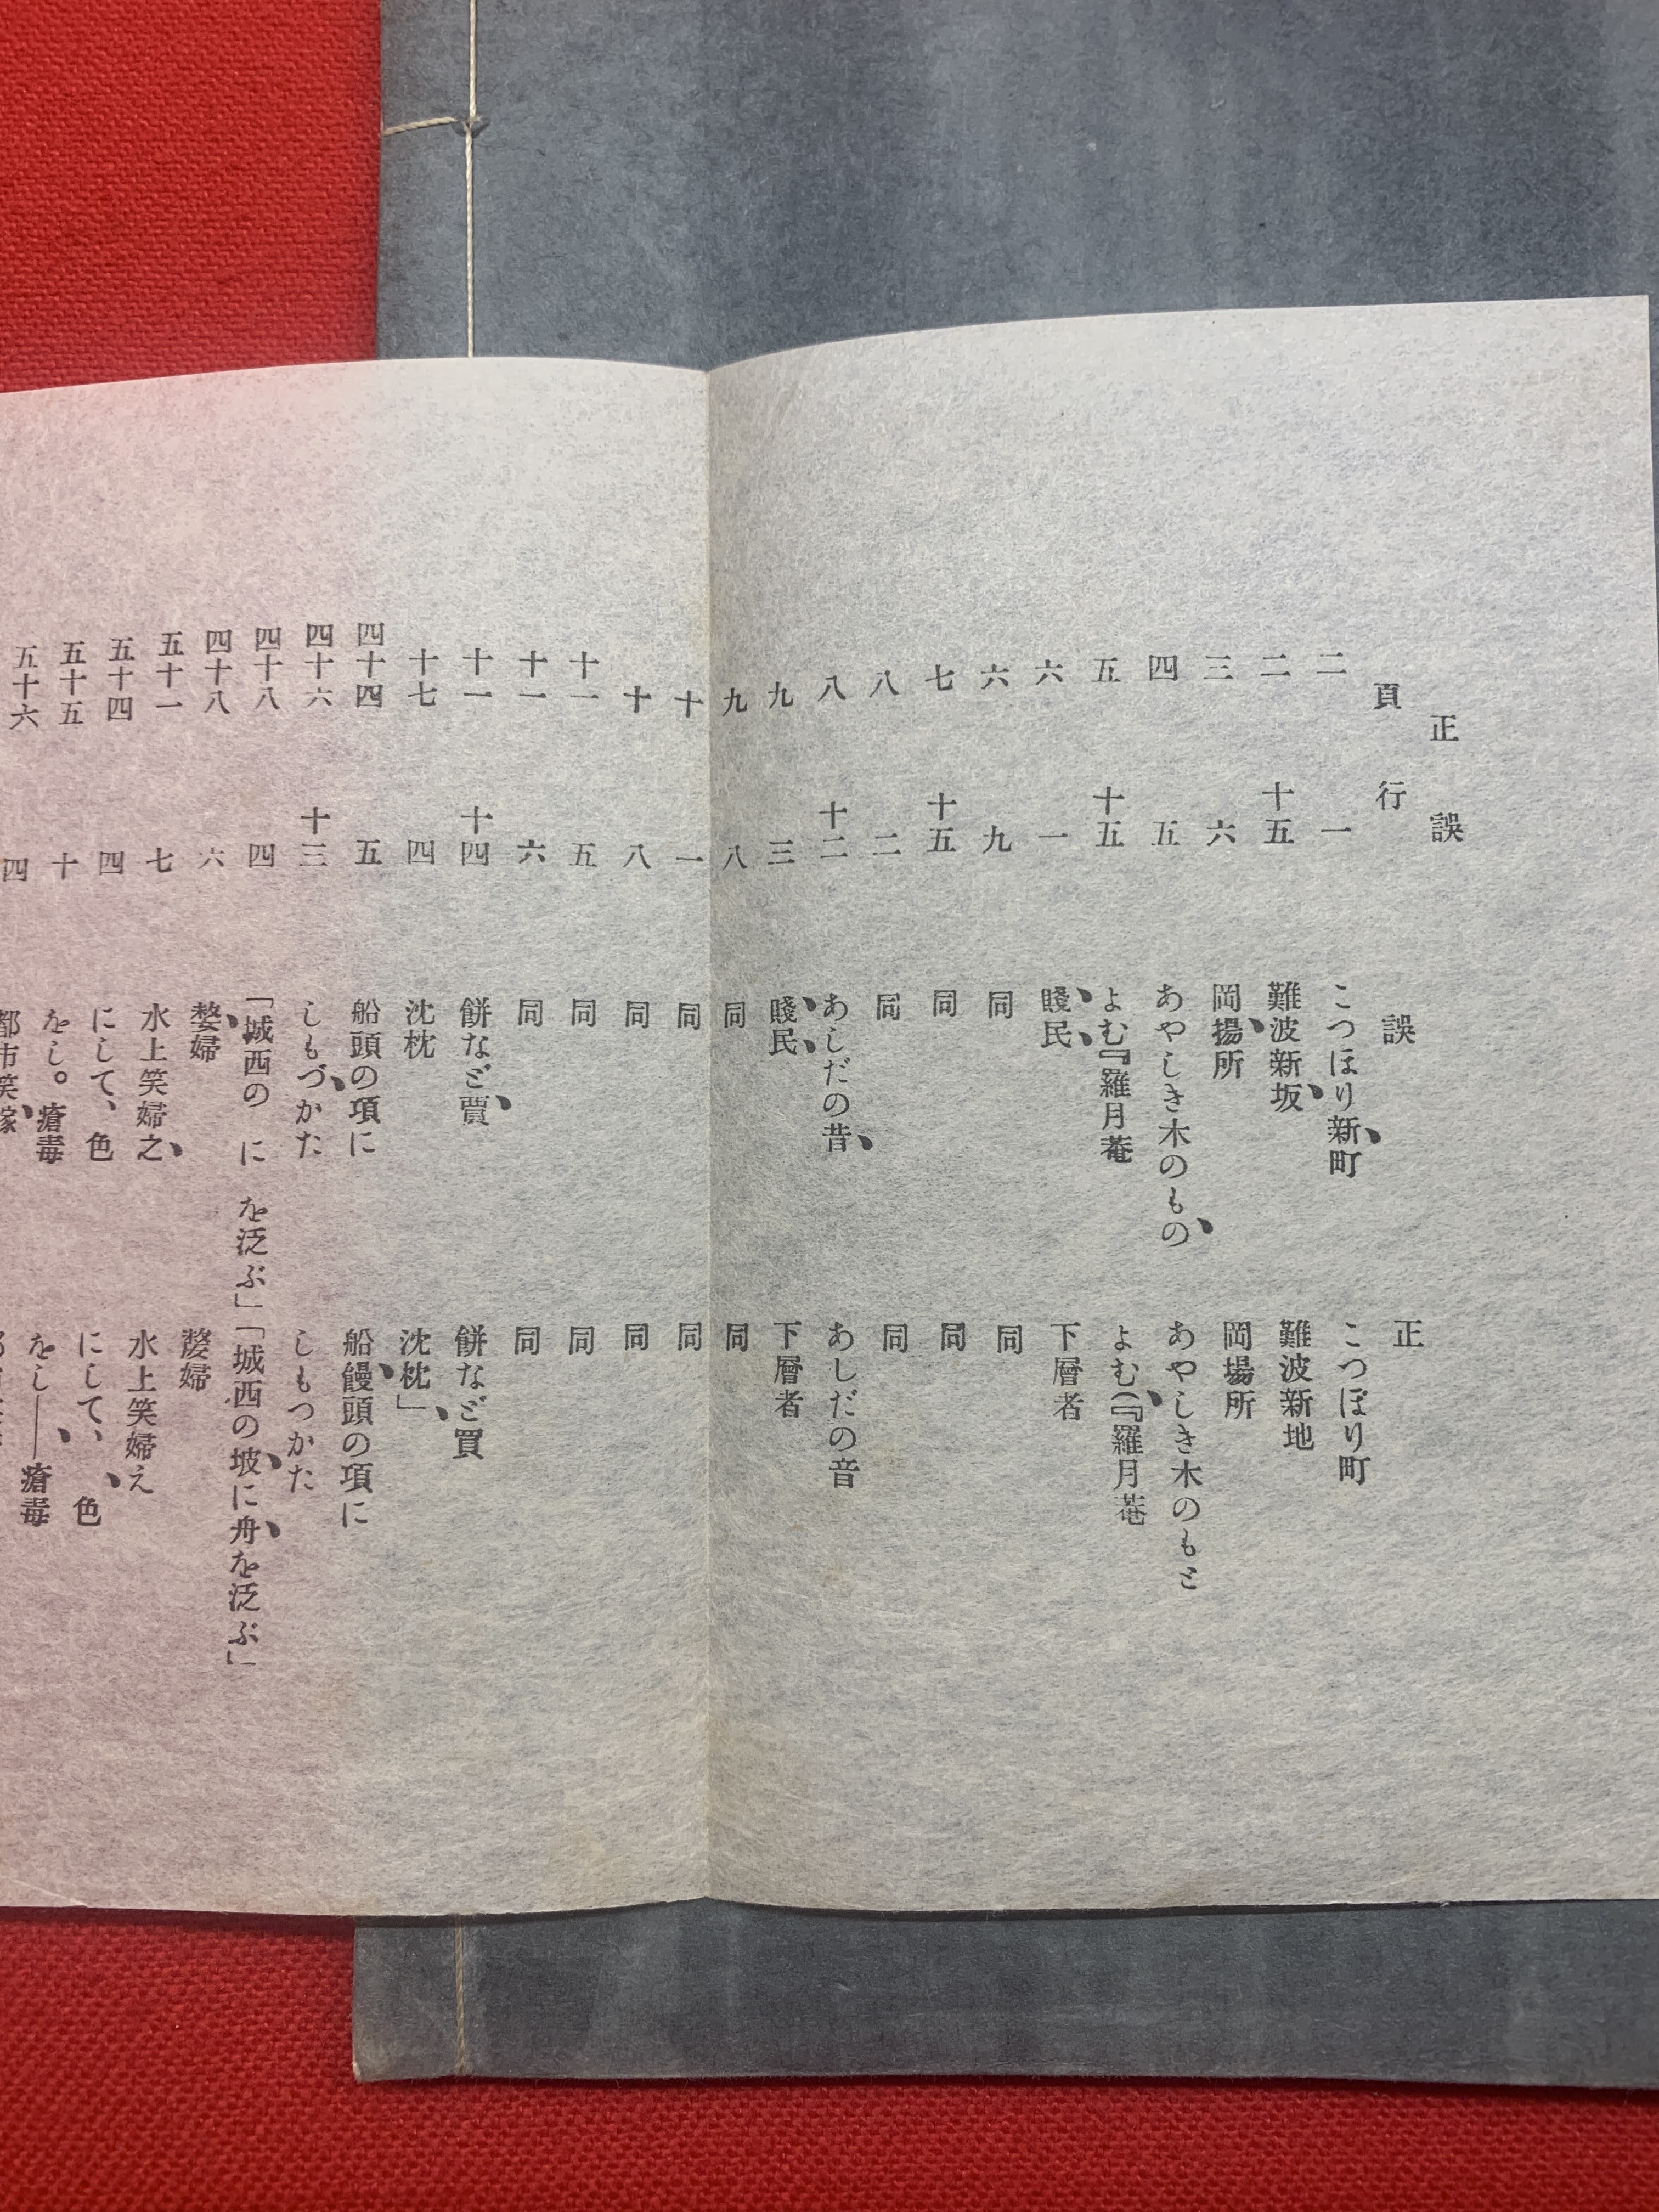 正誤
頁 行 誤 正
二 一 こつほり新町 こつぼり町
二 十五 難波新坂 難波新地
三 六 岡揚所 岡場所
四 五 あやしき木のもの あやしき木のもと
五 十五 よむ『羅月菴 よむ(『羅月菴
六 一 賤民 下層者
六 九 同 同
七 十五 同 同
八 二 同 同
八 十二 あしだの昔 あしだの音
九 三 賤民 下層者
九 八 同 同
十 一 同 同
十 八 同 同
十一 五 同 同
十一 六 同 同
十一 十四 餅など賣 餅など買
十七 四 沈枕 沈枕」
四十四 五 船頭の項に 船饅頭の項に
四十六 十三 しもづかた しもつかた
四十八 四 「城西の に を泛ぶ」 「城西の坡に舟を泛ぶ」
四十八 六 婺婦 嫠婦
五十一 七 水上笑婦之 水上笑婦え
五十四 四 にして、色 にして、、色
五十五 十 をし。瘡毒 をし——瘡毒
五十六 四 都市笑